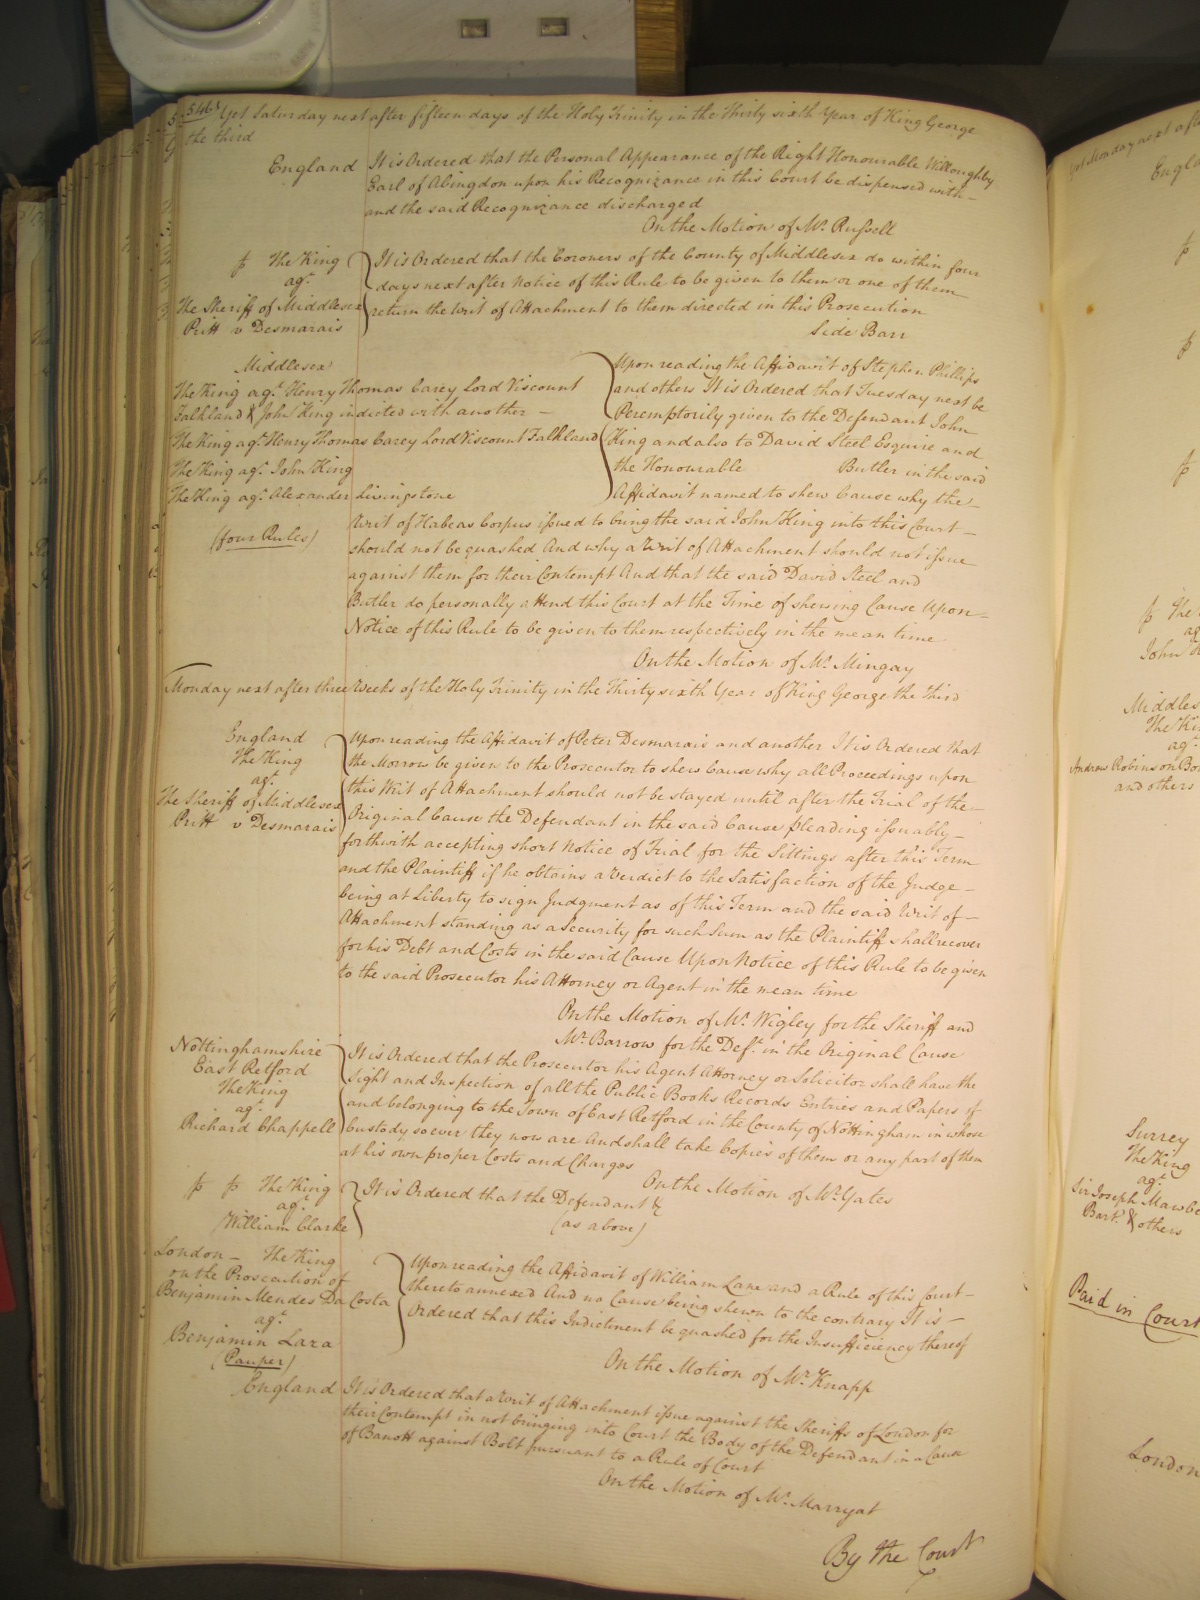 546 Yet Saturday next after fifteen days of the Holy Trinity in the Thirty sixth Year of King George
the third
England It is Ordered that the Personal Appearance of the Right Honourable Willoughby
Earl of Abingdon upon his Recognizance in this Court be dispensed with
and the said Recognizance discharged
On the Motion of Mr. Russell
The King
agt.
The Sheriff of Middlesex
Pritt v Desmarais
It is Ordered that the Coroners of the County of Middlesex do within four
days next after Notice of this Rule to be given to them or one of them
return the Writ of Attachment to them directed in this Prosecution
Side Barr
Middlesex
The King agt. Henry Thomas Carey Lord Viscount
Falkland & John King indicted with another
The King agt. Henry Thomas Carey Lord Viscount Falkland
The King agt. John King
The King agt. Alexander Livingstone
(four Rules)
Upon reading the Affidavit of Stephen Phillips
and others It is Ordered that Tuesday next be
Peremptorily given to the Defendant John
King and also to David Steel Esquire and
the Honourable Butler in the said
Affidavit named to shew Cause why the
Writ of Habeas Corpus issued to bring the said John King into this Court
should not be quashed And why a Writ of Attachment should not issue
against them for their Contempt And that the said David Steel and
Butler do personally attend this Court at the Time of shewing Cause Upon
Notice of this Rule to be given to them respectively in the mean time
On the Motion of Mr. Mingay
Monday next after three Weeks of the Holy Trinity in the Thirty sixth Year of King George the Third
England
The King
agt.
The Sheriff of Middlesex
Pritt v Desmarais
Upon reading the Affidavit of Peter Desmarais and another It is Ordered that
the Morrow be given to the Prosecutor to shew Cause why all Proceedings upon
this Writ of Attachment should not be stayed until after the Trial of the
Original Cause the Defendant in the said Cause pleading issuably
forthwith accepting short Notice of Trial for the Sittings after this Term
and the Plaintiff if he obtains a Verdict to the Satisfaction of the Judge
being at Liberty to sign Judgment as of this Term and the said Writ of
Attachment standing as a Security for such Sum as the Plaintiff shall recover
for his Debt and Costs in the said Cause Upon Notice of this Rule to be given
to the said Prosecutor his Attorney or Agent in the mean time
On the Motion of Mr. Wigley for the Sheriff and
Mr. Barrow for the Deft. in the Original Cause
Nottinghamshire
East Retford
The King
agt.
Richard Chappell
It is Ordered that the Prosecutor his Agent Attorney or Solicitor shall have the
Sight and Inspection of all the Public Books Records Entries and Papers of
and belonging to the Town of East Retford in the County of Nottingham in whose
Custody soever they now are And shall take Copies of them or any part of them
at his own proper Costs and Charges
On the Motion of Mr. Yates
The King
agt.
William Clarke
It is Ordered that the Defendant &
(as above)
London The King
on the Prosecution of
Benjamin Mendes Da Costa
agt.
Benjamin Lara
(Pauper)
Upon reading the Affidavit of William Lane and a Rule of this Court
thereto annexed And no Cause being shewn to the contrary It is
Ordered that this Indictment be quashed for the Insufficiency thereof
On the Motion of Mr. Knapp
England It is Ordered that a Writ of Attachment issue against the Sheriffs of London for
their Contempt in not bringing into Court the Body of the Defendant in a Cause
of Banott against Bolt pursuant to a Rule of Court
On the Motion of Mr. Marryat
By the Court
Yet Monday next afte
Engla
The
John
Middles
The Ki
agt.
Andrew Robinson Bo
and others
Surrey
The King
agt.
Sir Joseph Mawbe
Bart. & others
Paid in Court
London